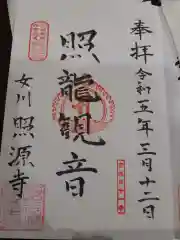 奉拝令和五年三月十二日
照龍観音
女川照源寺